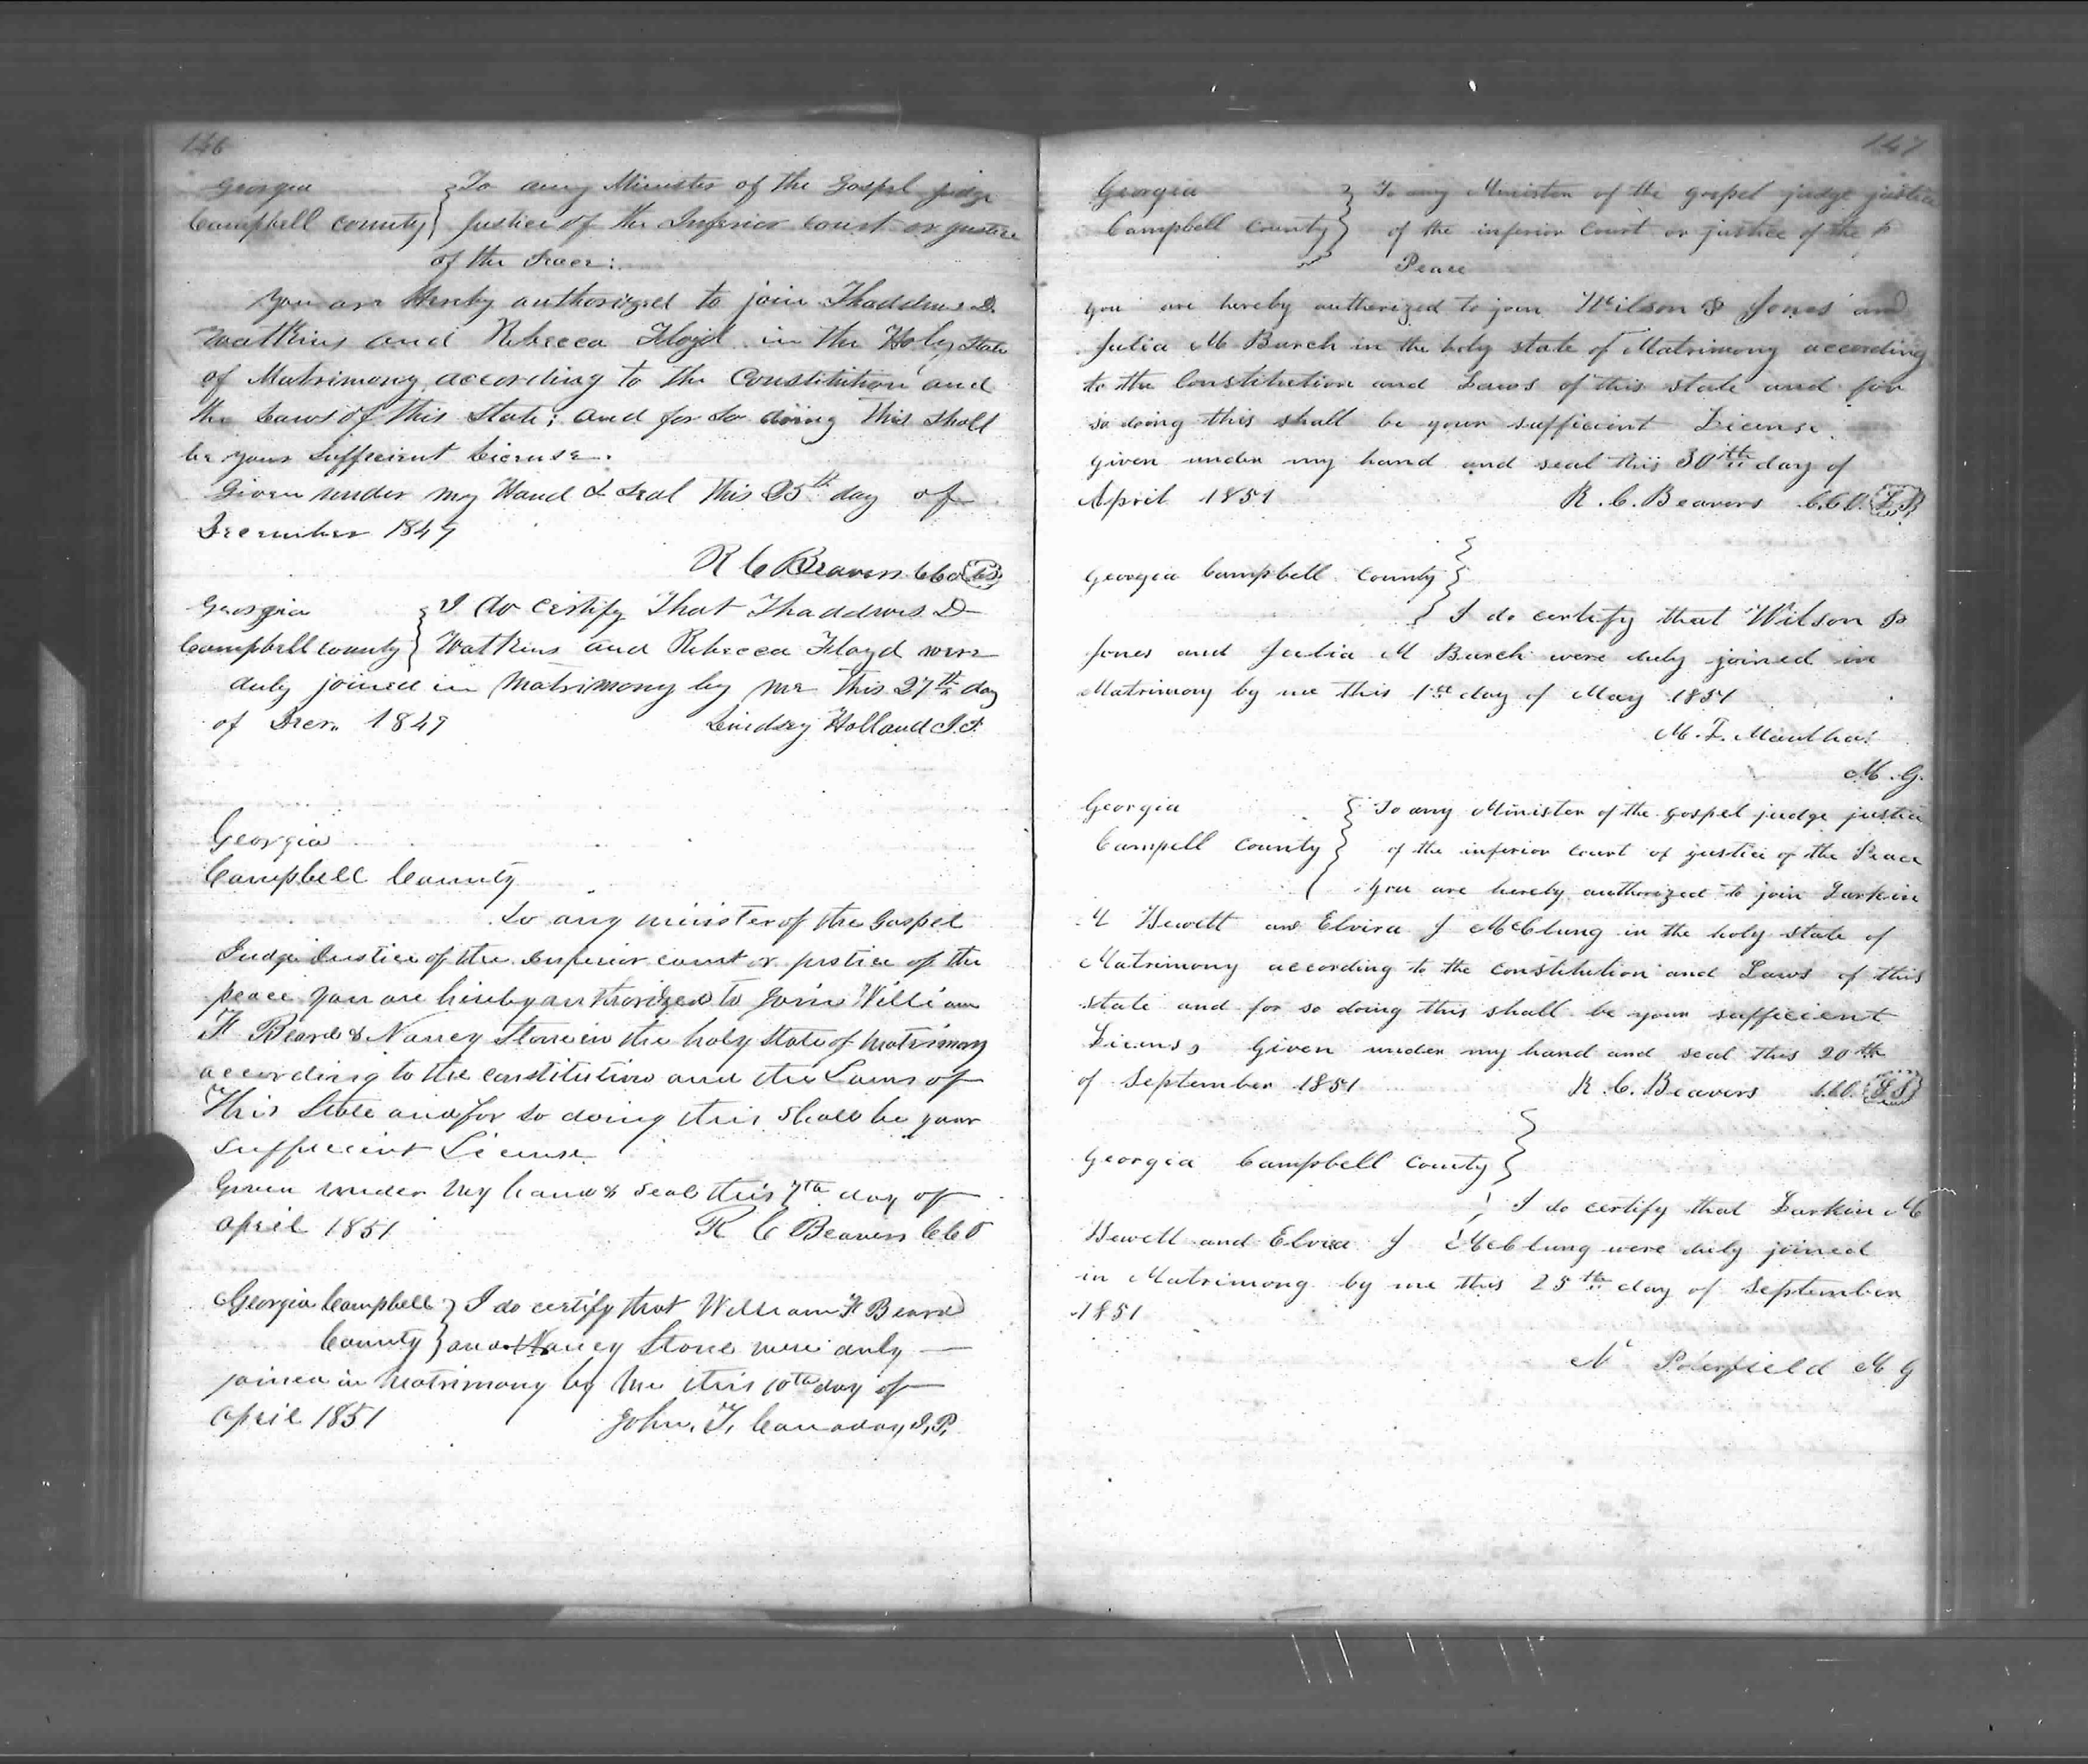 146
Georgia } To any Minister of the Gospel judge
Campbell county } Justice of the Inferior court or justice
of the Peace:
You are Hereby authorized to join Thaddeus D.
Watkins and Rebecca Floyd in the Holy State
of Matrimony according to the Constitution and
the Laws of this State; and for so doing This shall
be your Sufficient License.
Given under my Hand & Seal This 25th day of
December 1849
R C Beavers CCO LS
Georgia } I do certify That Thaddeus D
Campbell county } Watkins and Rebecca Floyd were
duly joined in Matrimony by me This 27th day
of Decr. 1849 Lindsey Holland J.P.
Georgia
Campbell County
To any minister of the Gospel
Judge Justice of the Inferior court or justice of the
peace you are hereby authorized to join William
H Beard & Nancy Stone in the holy State of Matrimony
according to the constitution and the Laws of
This State and for so doing this Shall be your
sufficient License
Given under my hand & seal this 7th day of
April 1851 R C Beavers CCO
Georgia Campbell } I do certify that William H Beard
County } and Nancy Stone were duly
joined in Matrimony by me this 10th day of
April 1851 John, T, Canaday, J, P,
147
Georgia } To any Minister of the gospel judge justice
Campbell County } of the inferior Court or justice of the p
Peace
you are hereby authorized to join Wilson P Jones and
Julia M Burch in the holy state of Matrimony according
to the Constitution and Laws of this state and for
so doing this shall be your sufficient License.
given under my hand and seal this 30th day of
April 1851 R. C. Beavers C.C.O. L S
Georgia Campbell County }
I do certify that Wilson P
Jones and Julia M Burch were duly joined in
Matrimony by me this 1st day of May 1851
M. L.
M. G.
Georgia } To any Minister of the gospel judge justice
Campell County } of the inferior Court of justice of the Peace
you are hereby authorized to join Larkin
Hewett and Elvira J McClung in the holy state of
Matrimony according to the constitution and Laws of this
state and for so doing this shall be your sufficient
License Given under my hand and seal this 20th
of September 1851 R. C. Beavers C.C.O. L S
Georgia Campbell County }
I do certify that Larkin M
Hewett and Elvira J McClung were duly joined
in Matrimony by me this 25th day of September
1851
N M G